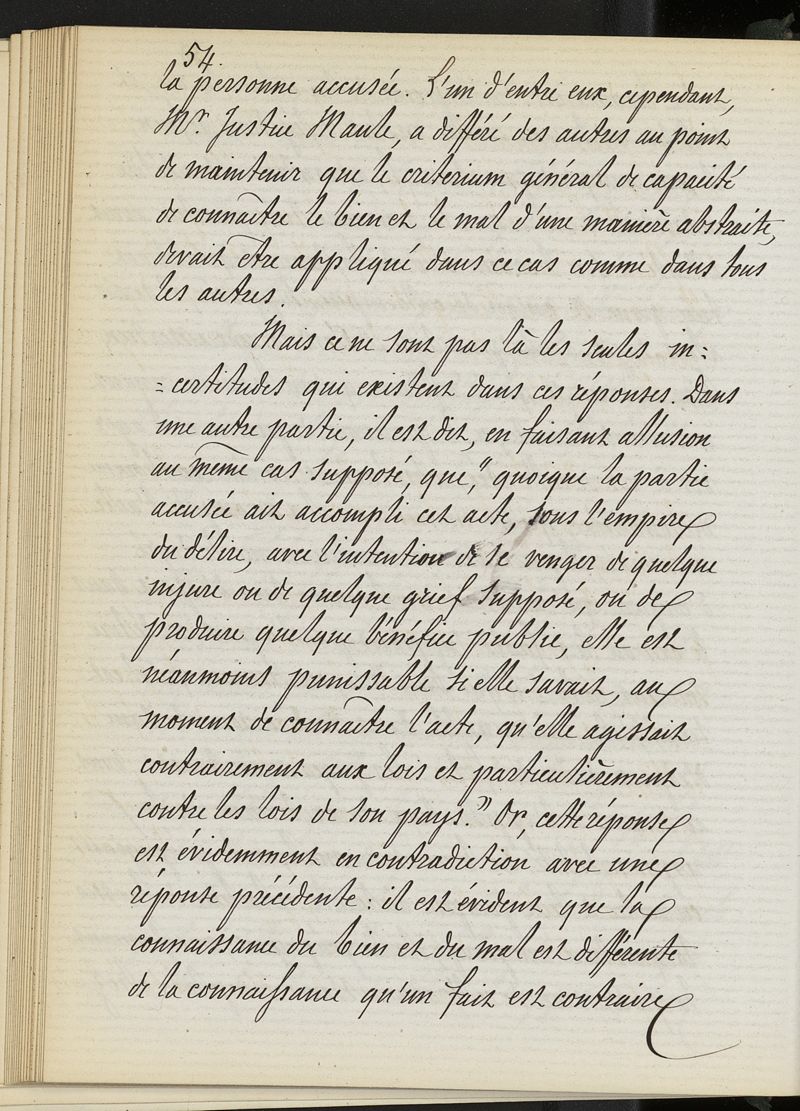 54.
la personne accusée. L'un d'entre eux, cependant,
Mr. Justice Maule, a différé des autres au point
de maintenir que le criterium général de capacité
de connaître le bien et le mal d'une manière abstraite,
devait être appliqué dans ce cas comme dans tous
les autres.
Mais ce ne sont pas là les seules in=
=certitudes qui existent dans ces réponses. Dans
une autre partie, il est dit, en faisant allusion
au même cas supposé, que, "quoique la partie
accusée ait accompli cet acte, sous l'empire
du délire, avec l'intention de se venger de quelque
injure ou de quelque grief supposé, ou de
produire quelque bénéfice public, elle est
néanmoins punissable si elle savait, au
moment de connaître l'acte, qu'elle agissait
contrairement aux lois et particulièrement
contre les lois de son pays." Or, cette réponse
est évidemment en contradiction avec une
réponse précédente : il est évident que la
connaissance du bien et du mal est différente
de la connaissance qu'un fait est contraire